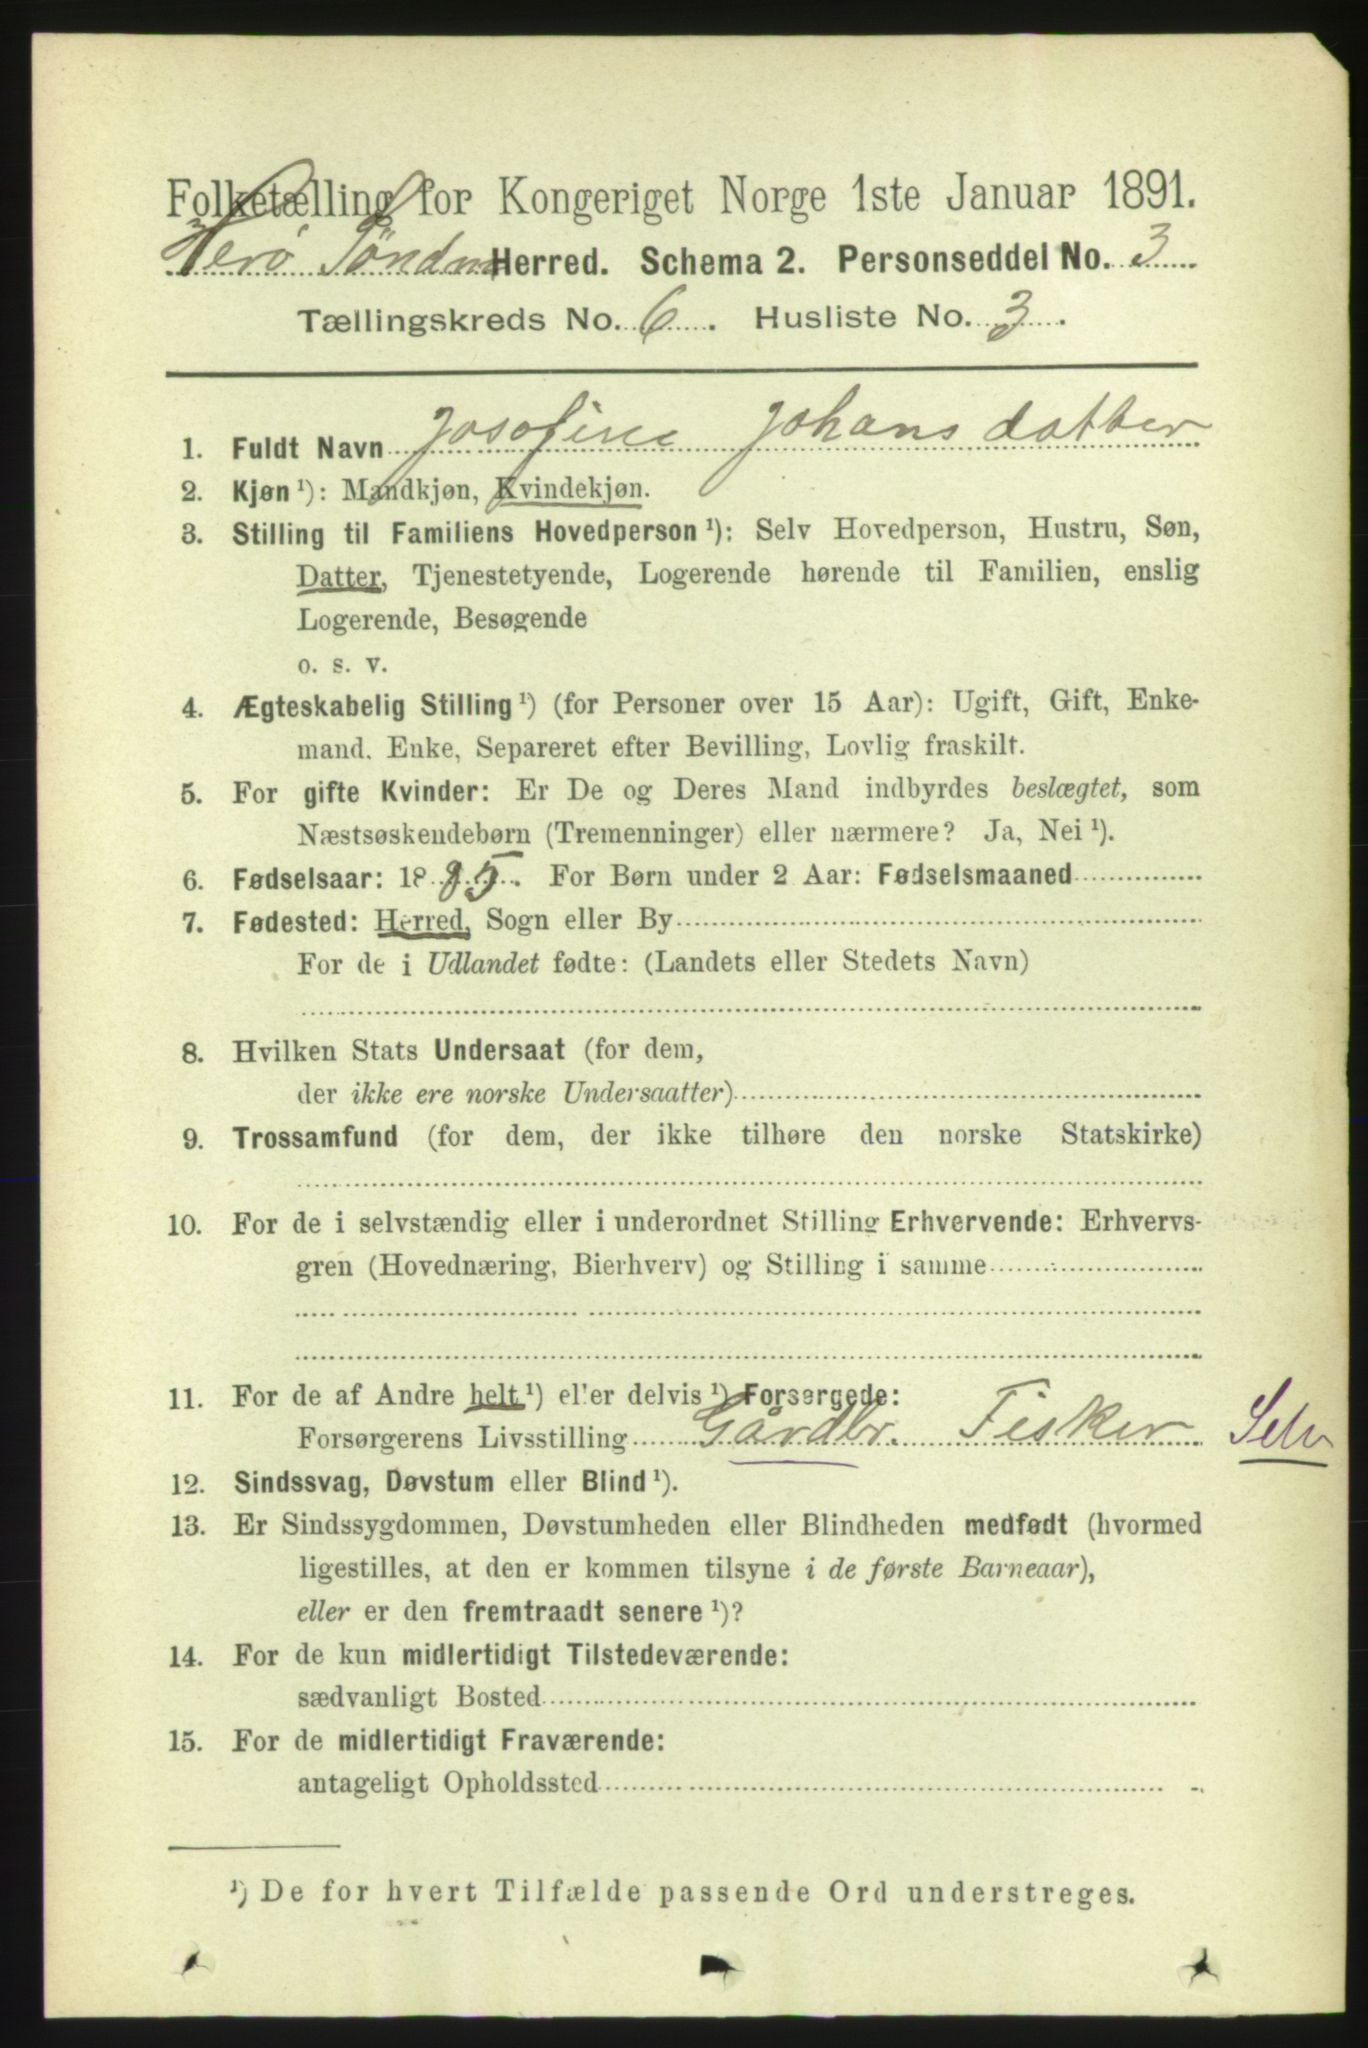 Folketælling for Kongeriget Norge 1ste Januar 1891.
Herø Söndm Herred. Schema 2. Personseddel No. 3
Tællingskreds No. 6. Husliste No. 3.
1. Fuldt Navn Josofine Johansdatter
2. Kjøn ¹): Mandkjøn, Kvindekjøn.
3. Stilling til Familiens Hovedperson ¹): Selv Hovedperson, Hustru, Søn,
Datter, Tjenestetyende, Logerende hørende til Familien, enslig
Logerende, Besøgende
o. s. v.
4. Ægteskabelig Stilling ¹) (for Personer over 15 Aar): Ugift, Gift, Enke-
mand. Enke, Separeret efter Bevilling, Lovlig fraskilt.
5. For gifte Kvinder: Er De og Deres Mand indbyrdes beslægtet, som
Næstsøskendebørn (Tremenninger) eller nærmere? Ja, Nei ¹).
6. Fødselsaar: 1885. For Børn under 2 Aar: Fødselsmaaned
7. Fødested: Herred, Sogn eller By
For de i Udlandet fødte: (Landets eller Stedets Navn)
8. Hvilken Stats Undersaat (for dem,
der ikke ere norske Undersaatter)
9. Trossamfund (for dem, der ikke tilhøre den norske Statskirke)
10. For de i selvstændig eller i underordnet Stilling Erhvervende: Erhvervs-
gren (Hovednæring, Bierhverv) og Stilling i samme
11. For de af Andre helt ¹) eller delvis ¹) Forsørgede:
Forsørgerens Livsstilling Gårdbr. Fisker Selv
12. Sindssvag, Døvstum eller Blind ¹).
13. Er Sindssygdommen, Døvstumheden eller Blindheden medfødt (hvormed
ligestilles, at den er kommen tilsyne i de første Barneaar),
eller er den fremtraadt senere ¹)?
14. For de kun midlertidigt Tilstedeværende:
sædvanligt Bosted
15. For de midlertidigt Fraværende:
antageligt Opholdssted
¹) De for hvert Tilfælde passende Ord understreges.